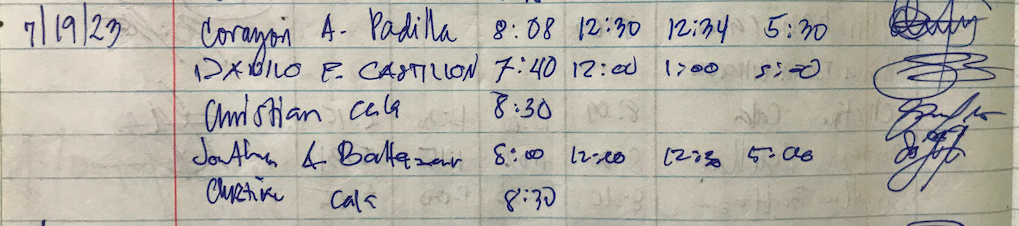 7/19/23 Corazon A. Padilla 8:08 12:30 12:34 5:30
DANILO E. CASTILLON 7:40 12:00 1:00 5:00
Christian Cala 8:30
A. Baltazar 8:00 12:00 12:30 5:00
Cala 8:30